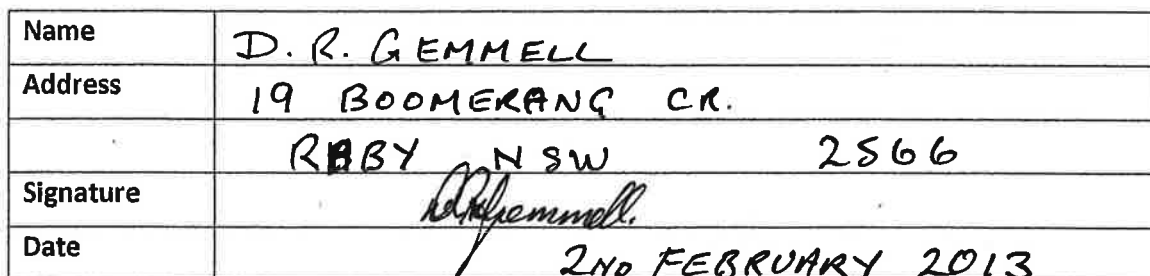 Name D. R. GEMMELL
Address 19 BOOMERANG CR.
RABY NSW 2566
Signature D R Gemmell.
Date 2ND FEBRUARY 2013